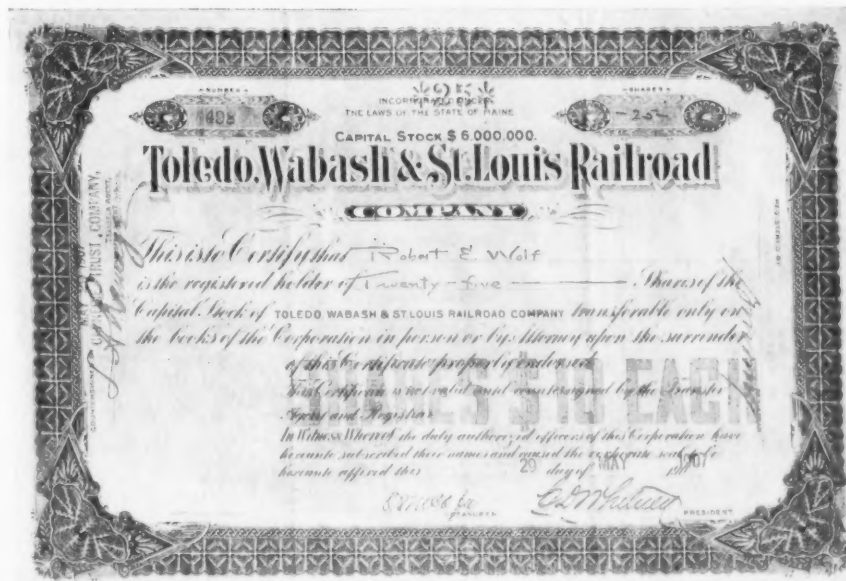 NUMBER
SHARES
25
INCORPORATED UNDER
THE LAWS OF THE STATE OF MAINE
- 25 -
CAPITAL STOCK $ 6,000,000.
Toledo, Wabash & St. Louis Railroad
COMPANY
This is to Certify that Robert E Wolf
is the registered holder of Twenty-five Shares of the
Capital Stock of TOLEDO WABASH & ST LOUIS RAILROAD COMPANY transferable only on
the books of the Corporation in person or by Attorney upon the surrender
of this Certificate properly endorsed
SHARES $10 EACH
This Certificate is not valid until countersigned by the Transfer
Agent and Registrar
In Witness Whereof the duly authorized officers of this Corporation have
hereunto subscribed their names and caused the corporate seal to be
hereunto affixed this 29 day of MAY 1907
TREASURER
PRESIDENT
TRUST COMPANY,
TRANSFER AGENT,